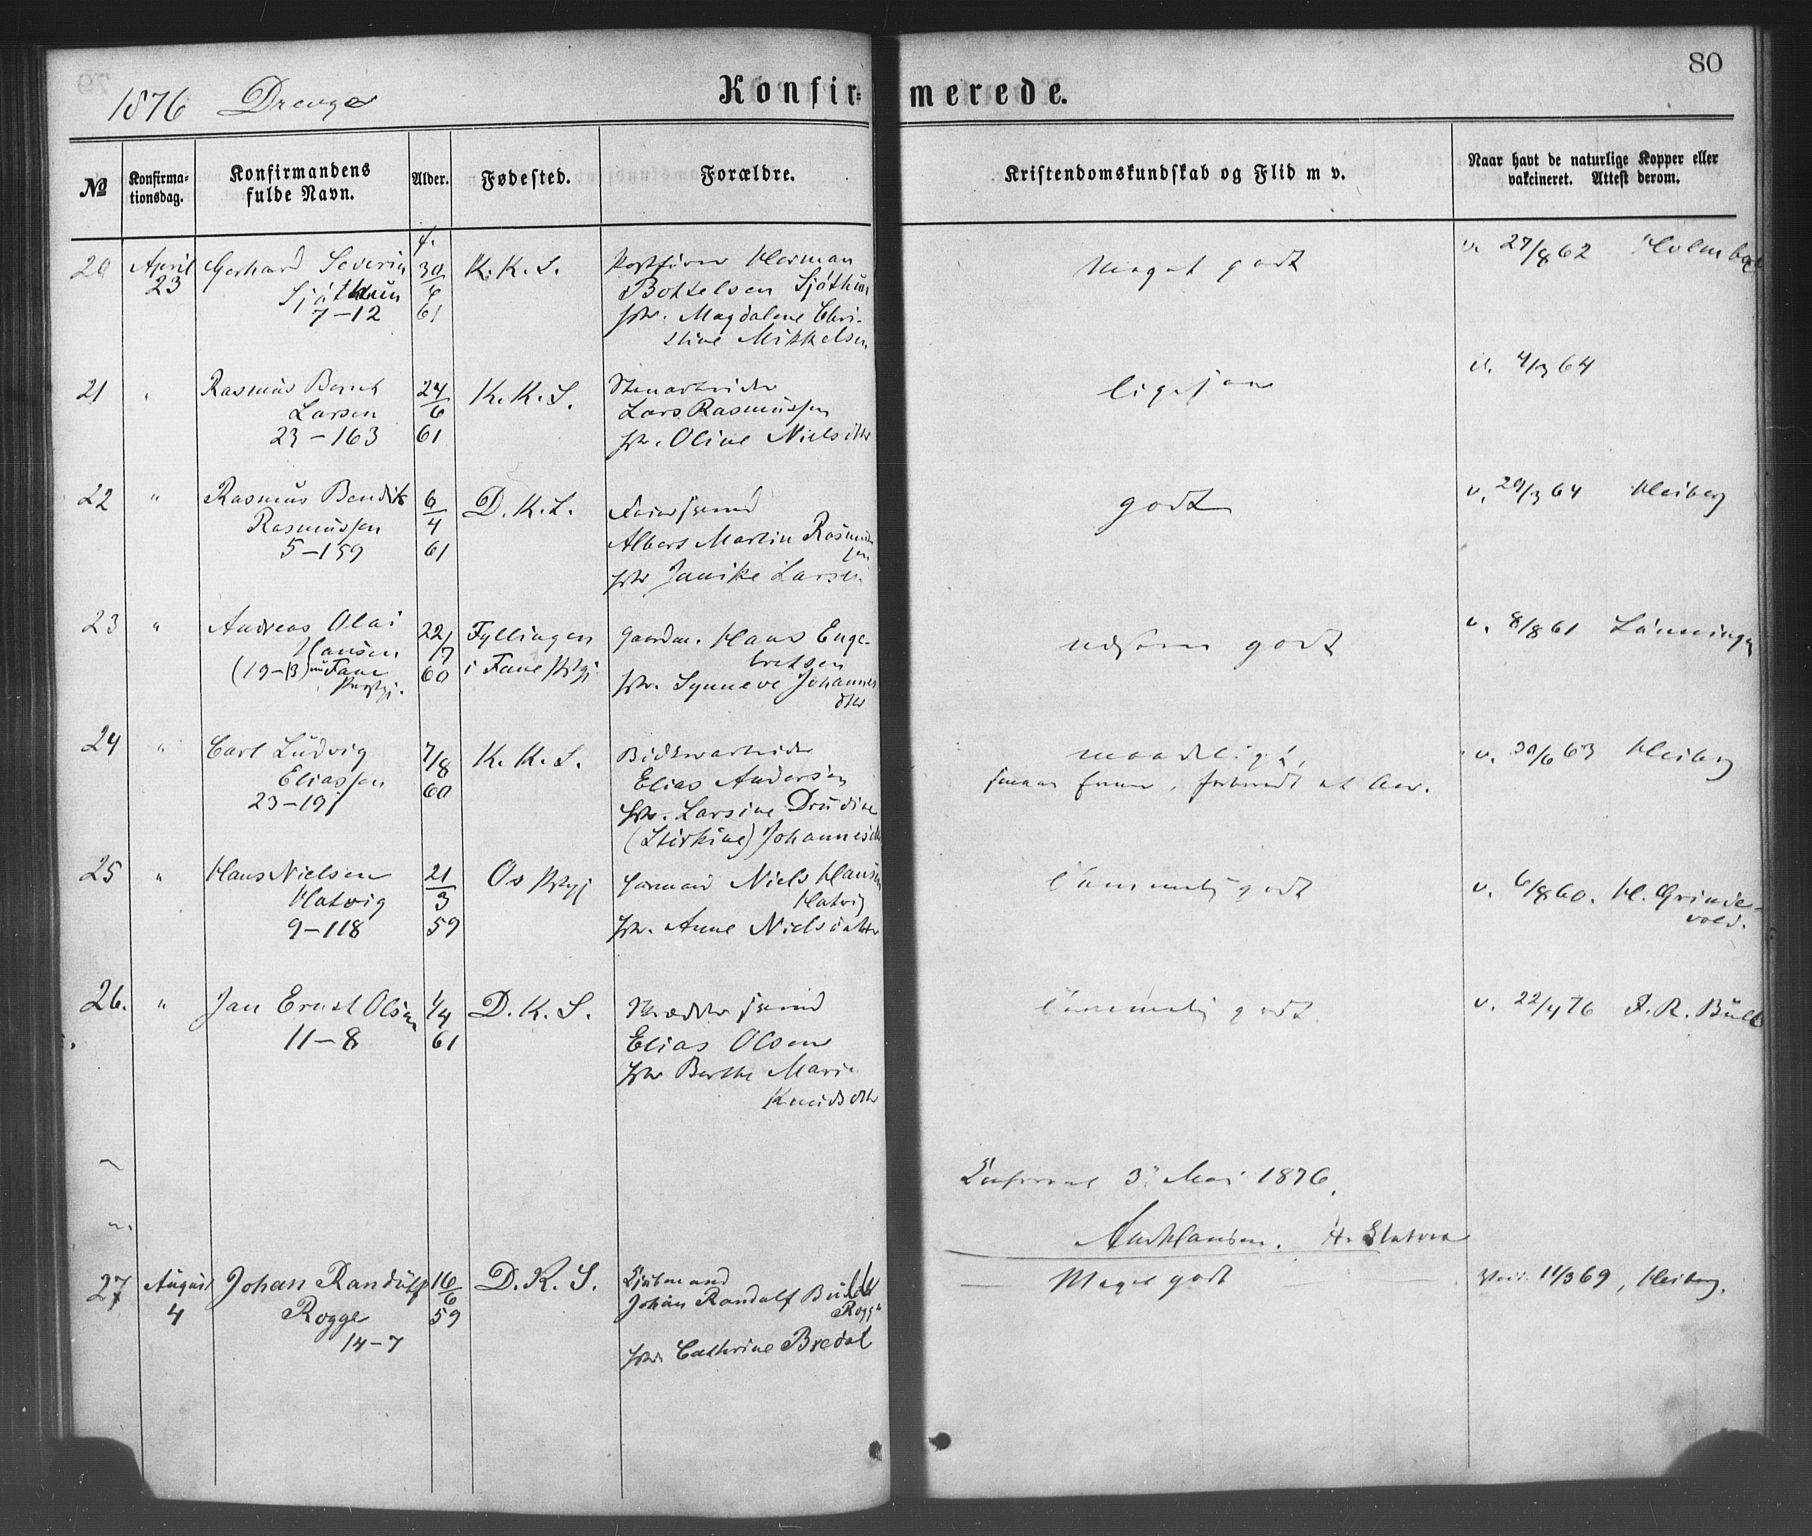 80
1876 Drenge
Konfir- merede.
No
Konfirma-
tionsdag.
Konfirmandens
fulde Navn.
Alder.
Fødested.
Forældre.
Kristendomskundskab og Flid m v.
Naar havt de naturlige Kopper eller
vakcineret. Attest derom.
f.
20 April 23
Gerhard Severin
Sjøthun
7-12
30/6 61
K. K. S.
Herman
Bottelsen Sjøthun
Magdalene Chri-
stine Mikkelsen
Meget godt
v. 27/8 62
21 "
Rasmus Bernt
Larsen
23-163
24/6 61
K. K. S.
Lars Rasmussen
Oline Nielsdtr
ligesaa
v. 4/3 64
22 "
Rasmus Bendik
Rasmussen
5-159
6/4 61
D. K. S.
Albert Martin Rasmus-
sen
Janike Larsen
godt
v. 20/3 64 Heiberg
23 "
Andreas Olai
Hansen
(19-13) nu Fane
Prgstgj.
22/7 60
Fyllingen
i Fane Prstgj.
Gaardm. Hans Enge-
bretsen
Synneve Johannes
dtr
godt
v. 8/8 61
24 "
Carl Ludvig
Eliassen
23-191
7/8 60
K. K. S.
Elias Andersen
Larsine Drudine
(Stirkine) Johannesdtr
maadeligt,
v. 30/6 63 Heiberg
25 "
Hans Nielsen
Hatvig
9-118
21/3 59
Os Prstgj
Niels Hansen
Hatvig
Anne Nielsdatter
temmelig godt
v. 6/8 60. H. Grindе-
vold.
26. "
Jan Ernst Olsen
11-8
1/4 61
D. K. S.
Skrædder
Elias Olsen
Berthe Marie
Knudsdtr
temmelig godt.
v. 22/4 76 F. R. Bull
3. Mai 1876.
27 August 4
Johan Randulf
Rogge
14-7
16/6 59
D. K. S.
Johan Randulf Bull
Rogge
Cathrine Bredal
Meget godt
11/3 69, Heiberg.